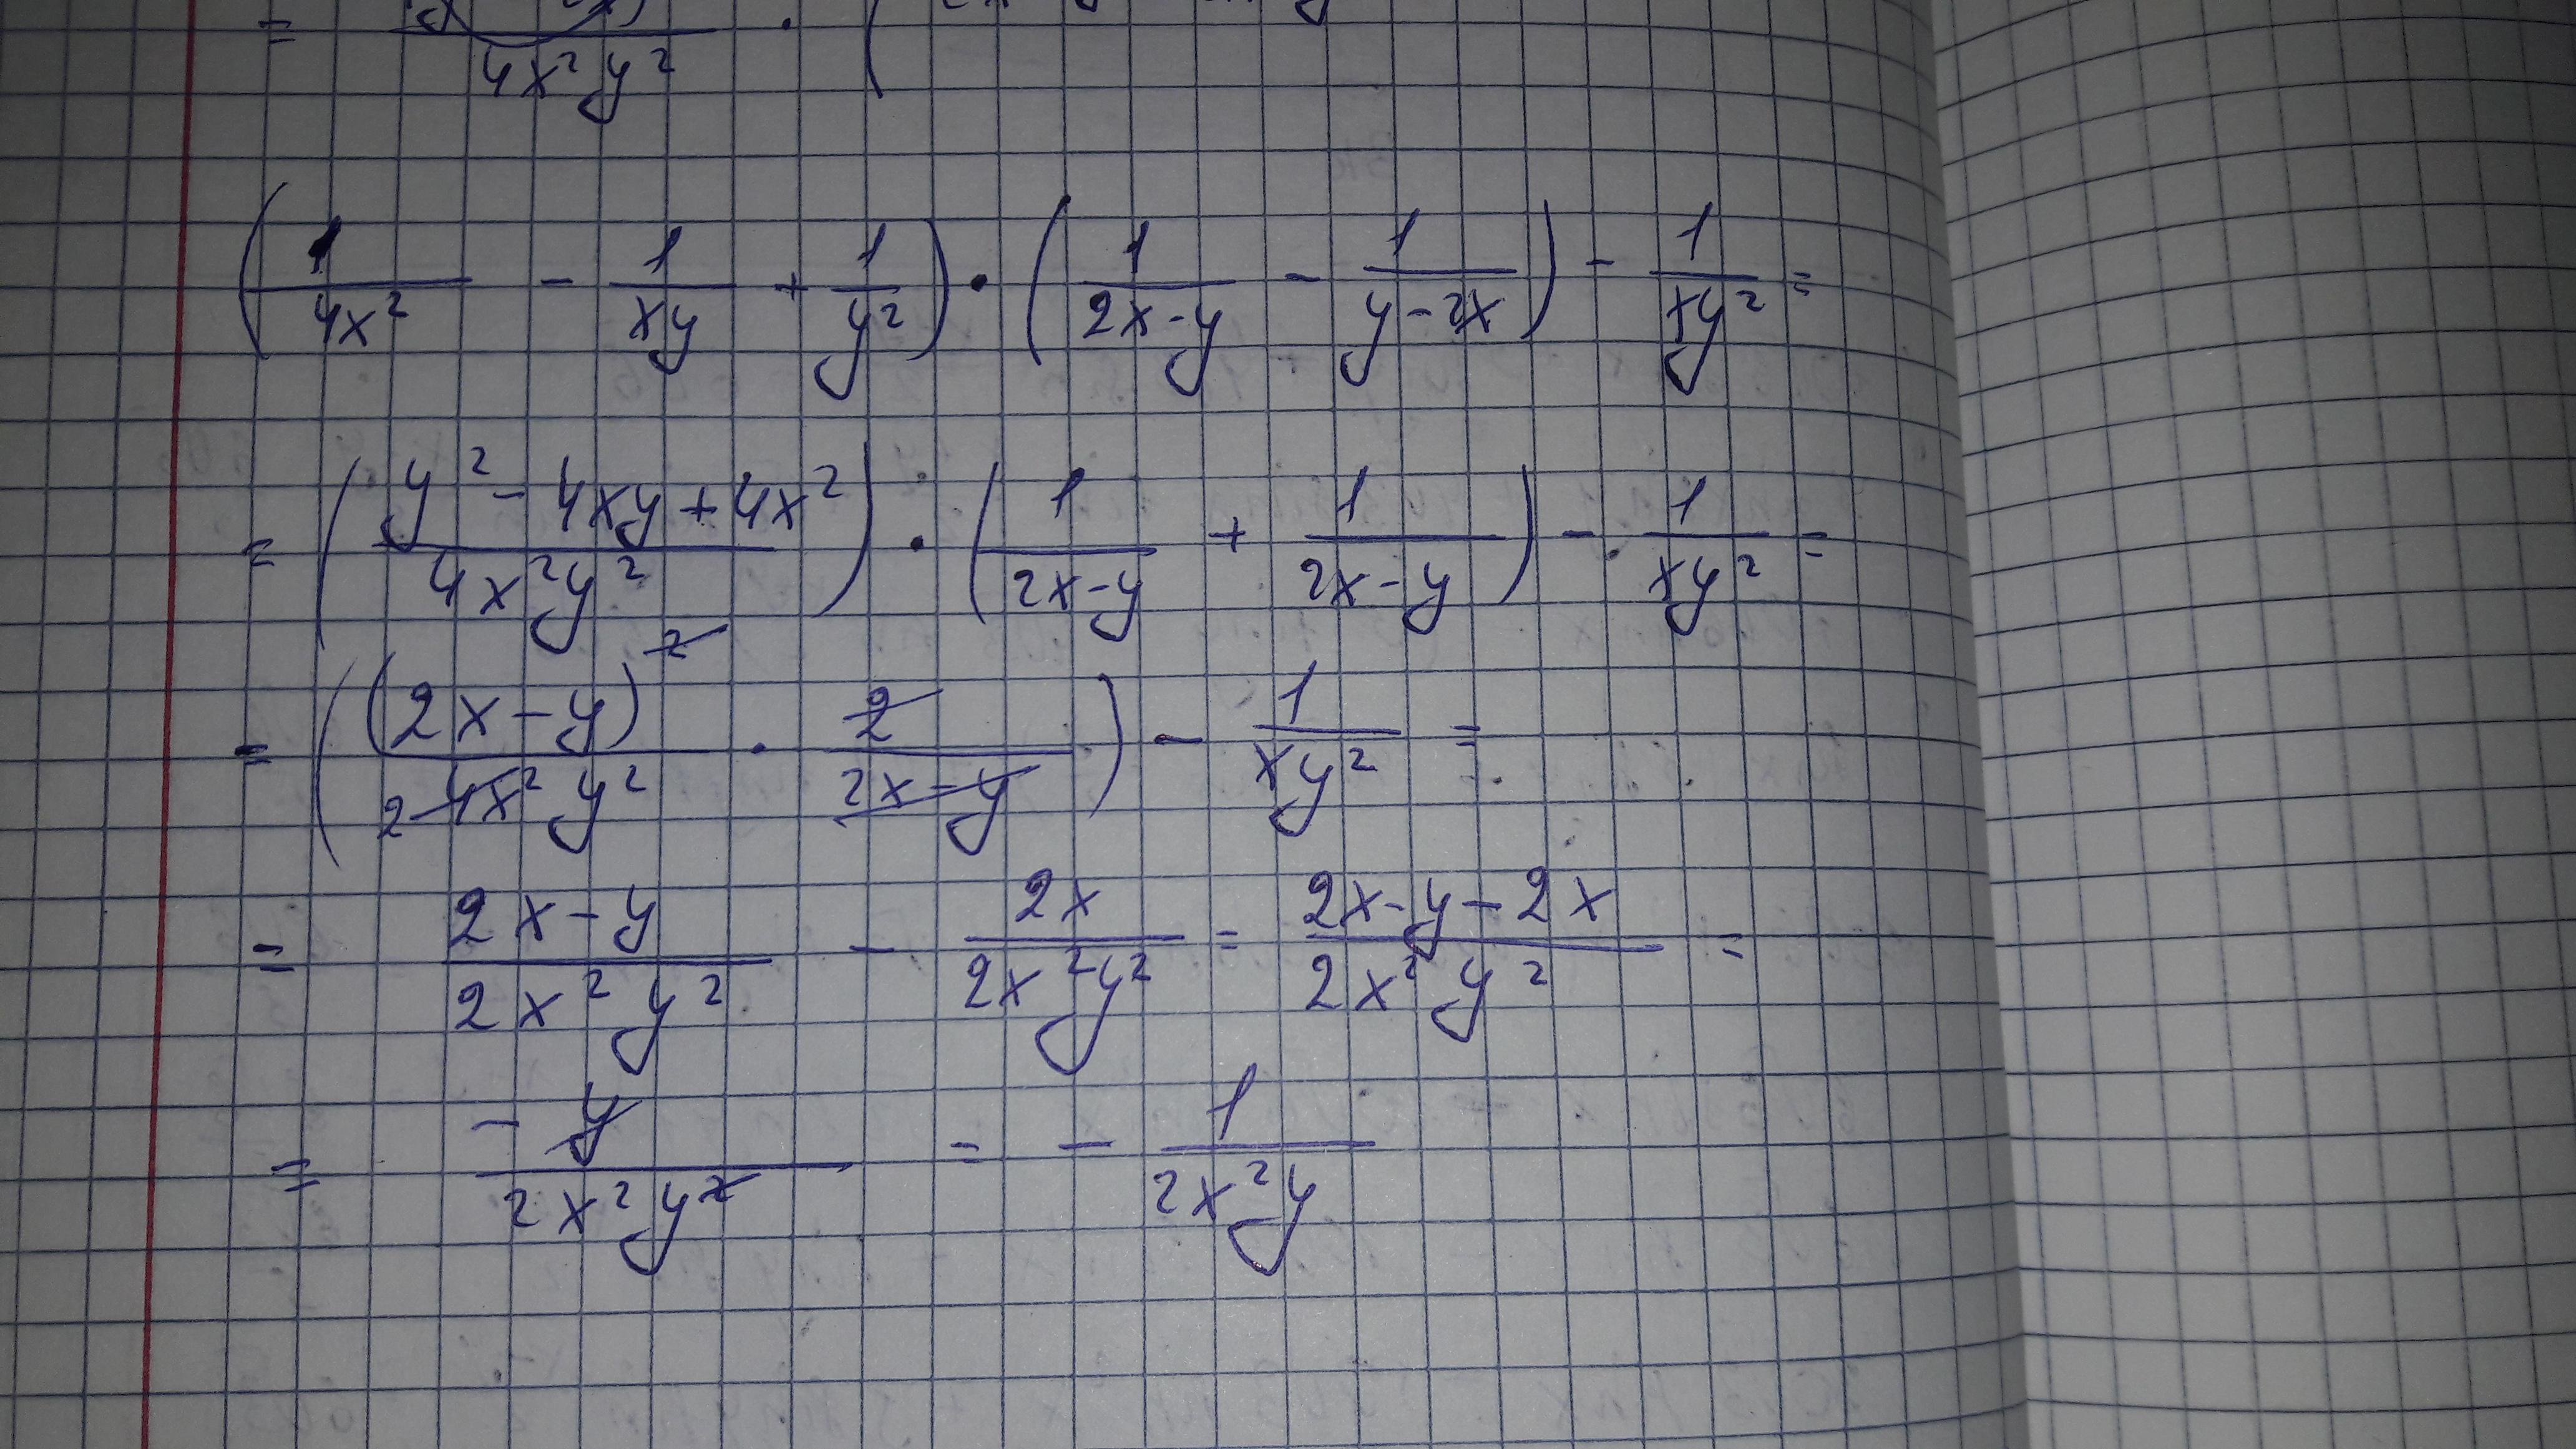 = / 4x² y² · (
(1/4x² - 1/xy + 1/y²) · (1/2x-y - 1/y-2x) - 1/xy² =
= (y² - 4xy + 4x² / 4x²y²) · (1/2x-y + 1/2x-y) - 1/xy² =
= ((2x-y)² / 2 4x² y² · 2/2x-y) - 1/xy² =
= 2x-y / 2x² y² - 2x / 2x²y² = 2x-y-2x / 2x² y² =
= -y / 2x² y² = - 1 / 2x²y